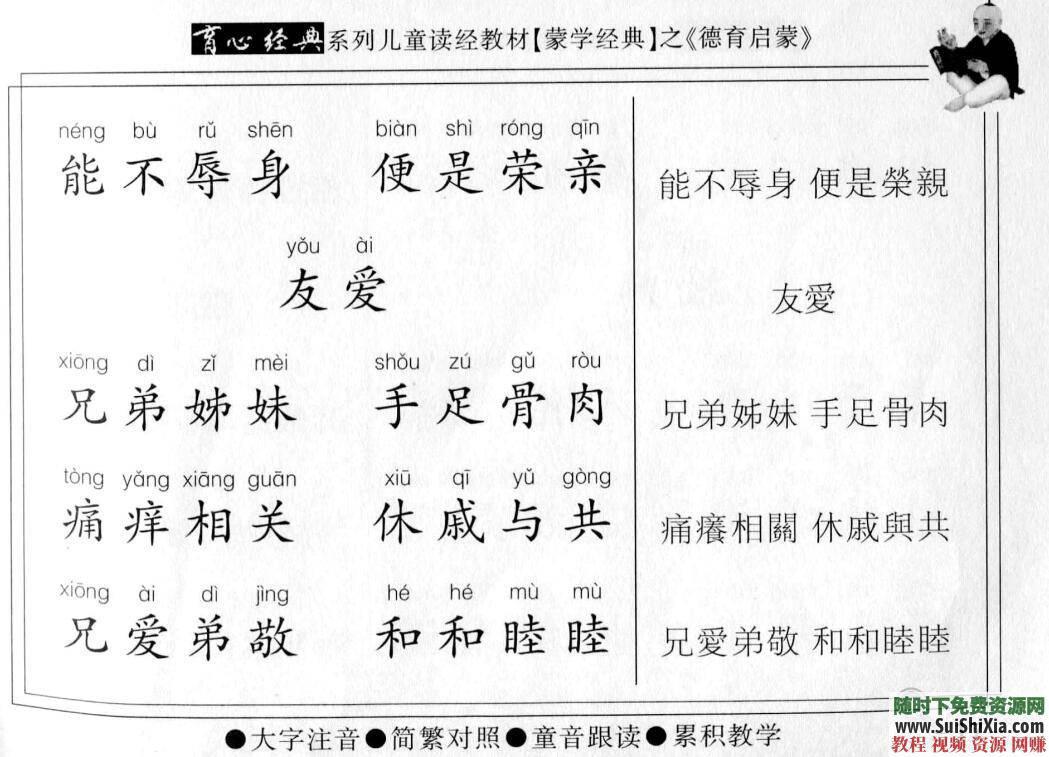 育心经典系列儿童读经教材【蒙学经典】之《德育启蒙》
néng bù rǔ shēn biàn shì róng qīn
能不辱身 便是荣亲 能不辱身 便是榮親
yǒu ài
友爱 友愛
xiōng dì zǐ mèi shǒu zú gǔ ròu
兄弟姊妹 手足骨肉 兄弟姊妹 手足骨肉
tòng yǎng xiāng guān xiū qī yǔ gòng
痛痒相关 休戚与共 痛癢相關 休戚與共
xiōng ài dì jìng hé hé mù mù
兄爱弟敬 和和睦睦 兄愛弟敬 和和睦睦
●大字注音●简繁对照●童音跟读●累积教学
随时下免费资源网
www.SuiShiXia.com
教程 视频 资源 网赚